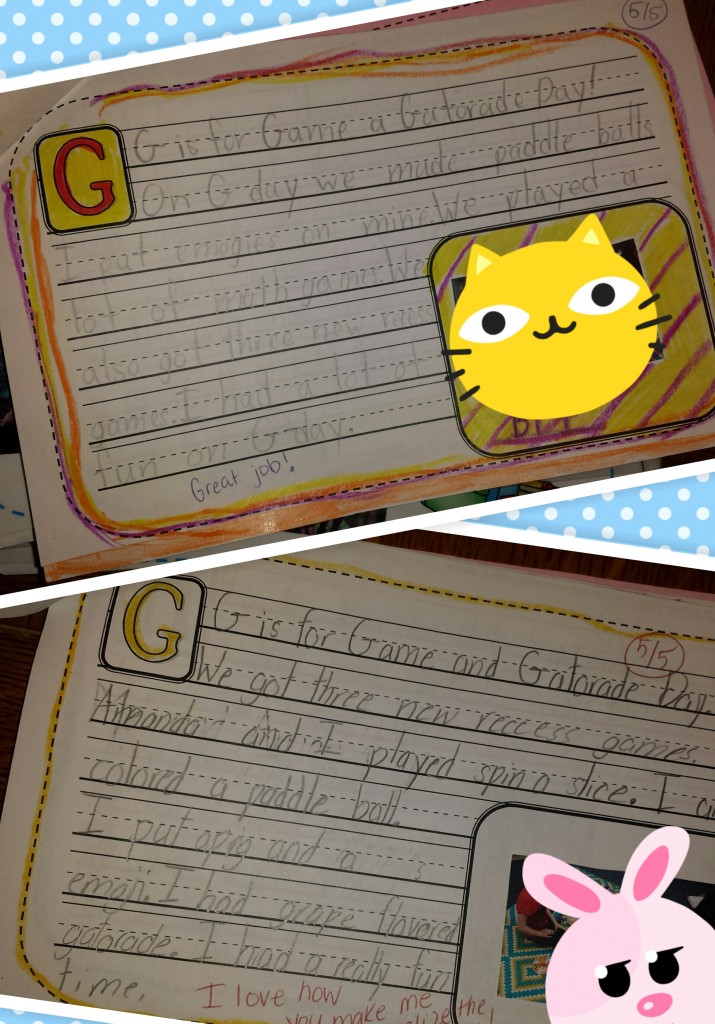 5/5
G
G is for Game a Gatorade Day!
On G day we made paddle balls
I put emogies on mine. We played a
lot of math games. We
also got three new recess
games. I had a lot of
fun on G day.
Great job!
G
G is for Game and Gatorade Day.
5/5
We got three new reccess games.
Amanda and I played spin a slice. I
colored a paddle ball.
I put a pig and a
emoji. I had grape flavored
gatorade. I had a really fun
time.
I love how
you make me
the